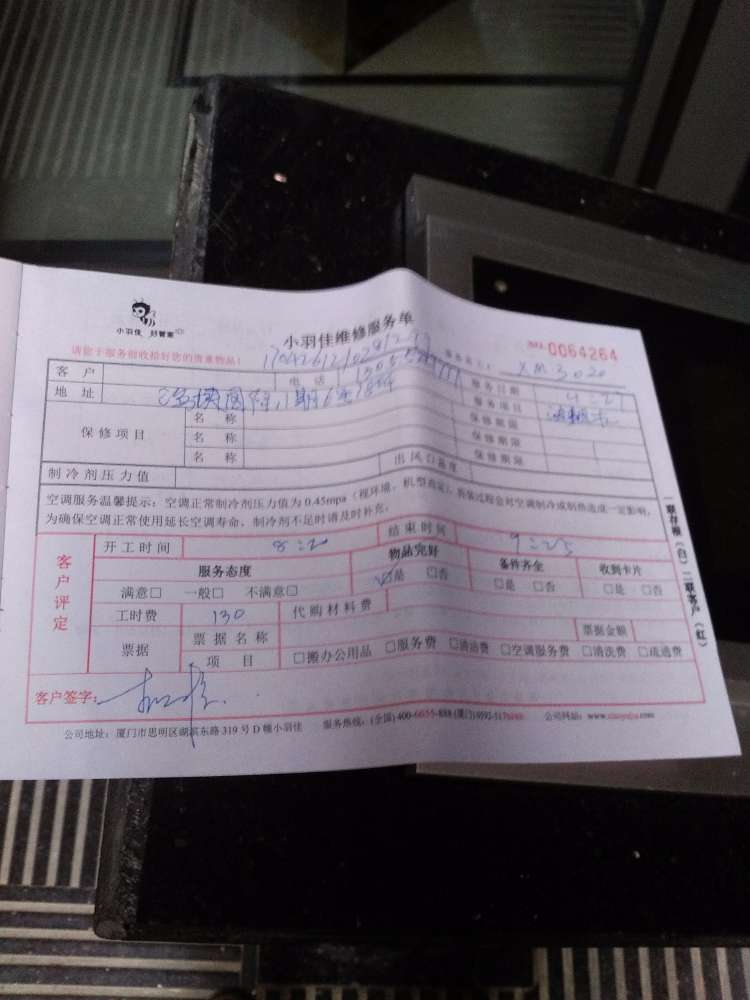 小羽佳 好管家
小羽佳维修服务单
NO. 0064264
请您于服务前收拾好您的贵重物品!
XM3020
客户 电话 服务日期 4:27
地址 服务项目
保修项目 名称 保修期限
名称 保修期限
名称 保修期限
制冷剂压力值 出风口温度
空调服务温馨提示:空调正常制冷剂压力值为0.45mpa(视环境、机型而定),
为确保空调正常使用延长空调寿命,制冷剂不足时请及时补充。
客户评定
开工时间 8:20 结束时间 9:25
服务态度 物品完好 备件齐全 收到卡片
满意□ 一般□ 不满意□ ☑是 □否 □是 □否 □是 □否
工时费 130 代购材料费
票据 票据名称 票据金额
项目 □搬办公用品 □服务费 □清洁费 □空调服务费 □清洗费 □疏通费
客户签字:
一联存根(白)二联客户(红)
公司地址:厦门市思明区湖滨东路319号D幢小羽佳 服务热线:(全国)400-6655-888 (厦门) 公司网站:www.xiaoyujia.com